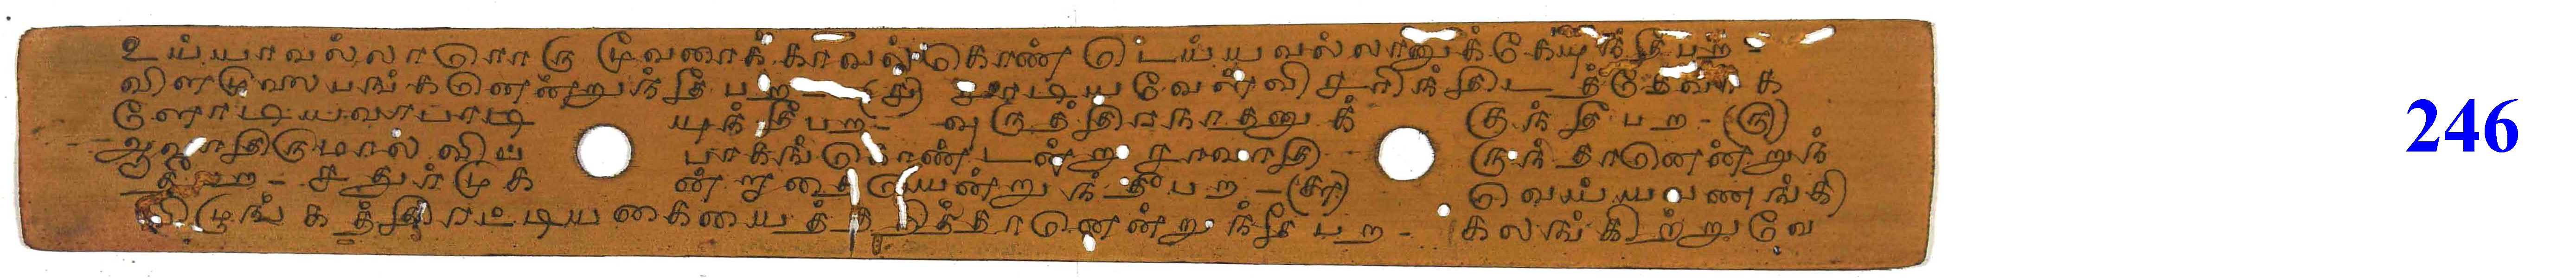 உய்யவல்லாரொரு மூவரைக் காவல்கொண்டெய்யவல்லானுக்கேயுந்தீபற -
விளமுலை பங்கனென்றுந்தீபற - (௪) சாடியவேள்வி சரிந்திடத்தேவர்க
ளோடியவாபாடி யுந்தீபற - வுருத்திரநாதனுக் குந்தீபற - (௫)
ஆவாதிருமால் விப் பாகங்கொண்டன்று சாவாதி ருந்தானென்றுந்
தீபற - சதுர்முக ன்றாதையென்றுந்தீபற - (௬) வெய்யவனங்கி
விழுங்கத்திரட்டிய கையைத்தறித்தானென்றுந்தீபற - கலங்கிற்றுவே
246